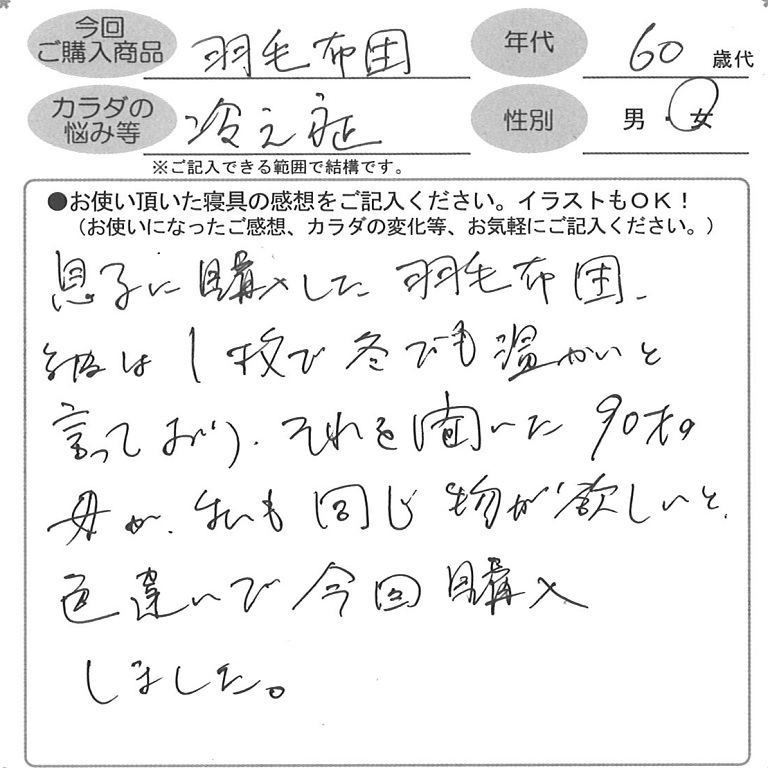 今回
ご購入商品 羽毛布団 年代 60 歳代
カラダの
悩み等 冷え症 性別 男・女
※ご記入できる範囲で結構です。
●お使い頂いた寝具の感想をご記入ください。イラストもOK!
(お使いになったご感想、カラダの変化等、お気軽にご記入ください。)
息子に購入した羽毛布団、
彼は1枚で冬でも温かいと
言っており、それを聞いた90才の
母が、私も同じ物が欲しいと、
色違いで今回購入
しました。